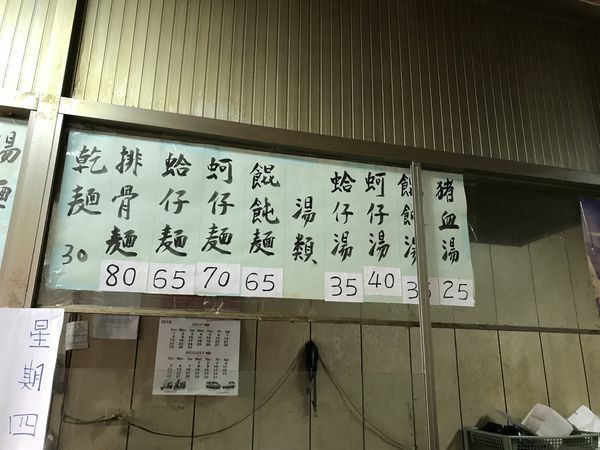 湯麵
乾麵 30
排骨麵 80
蛤仔麵 65
蚵仔麵 70
餛飩麵 65
湯類
蛤仔湯 35
蚵仔湯 40
餛飩湯 35
豬血湯 25
星期四
2018 JULY
AUGUST